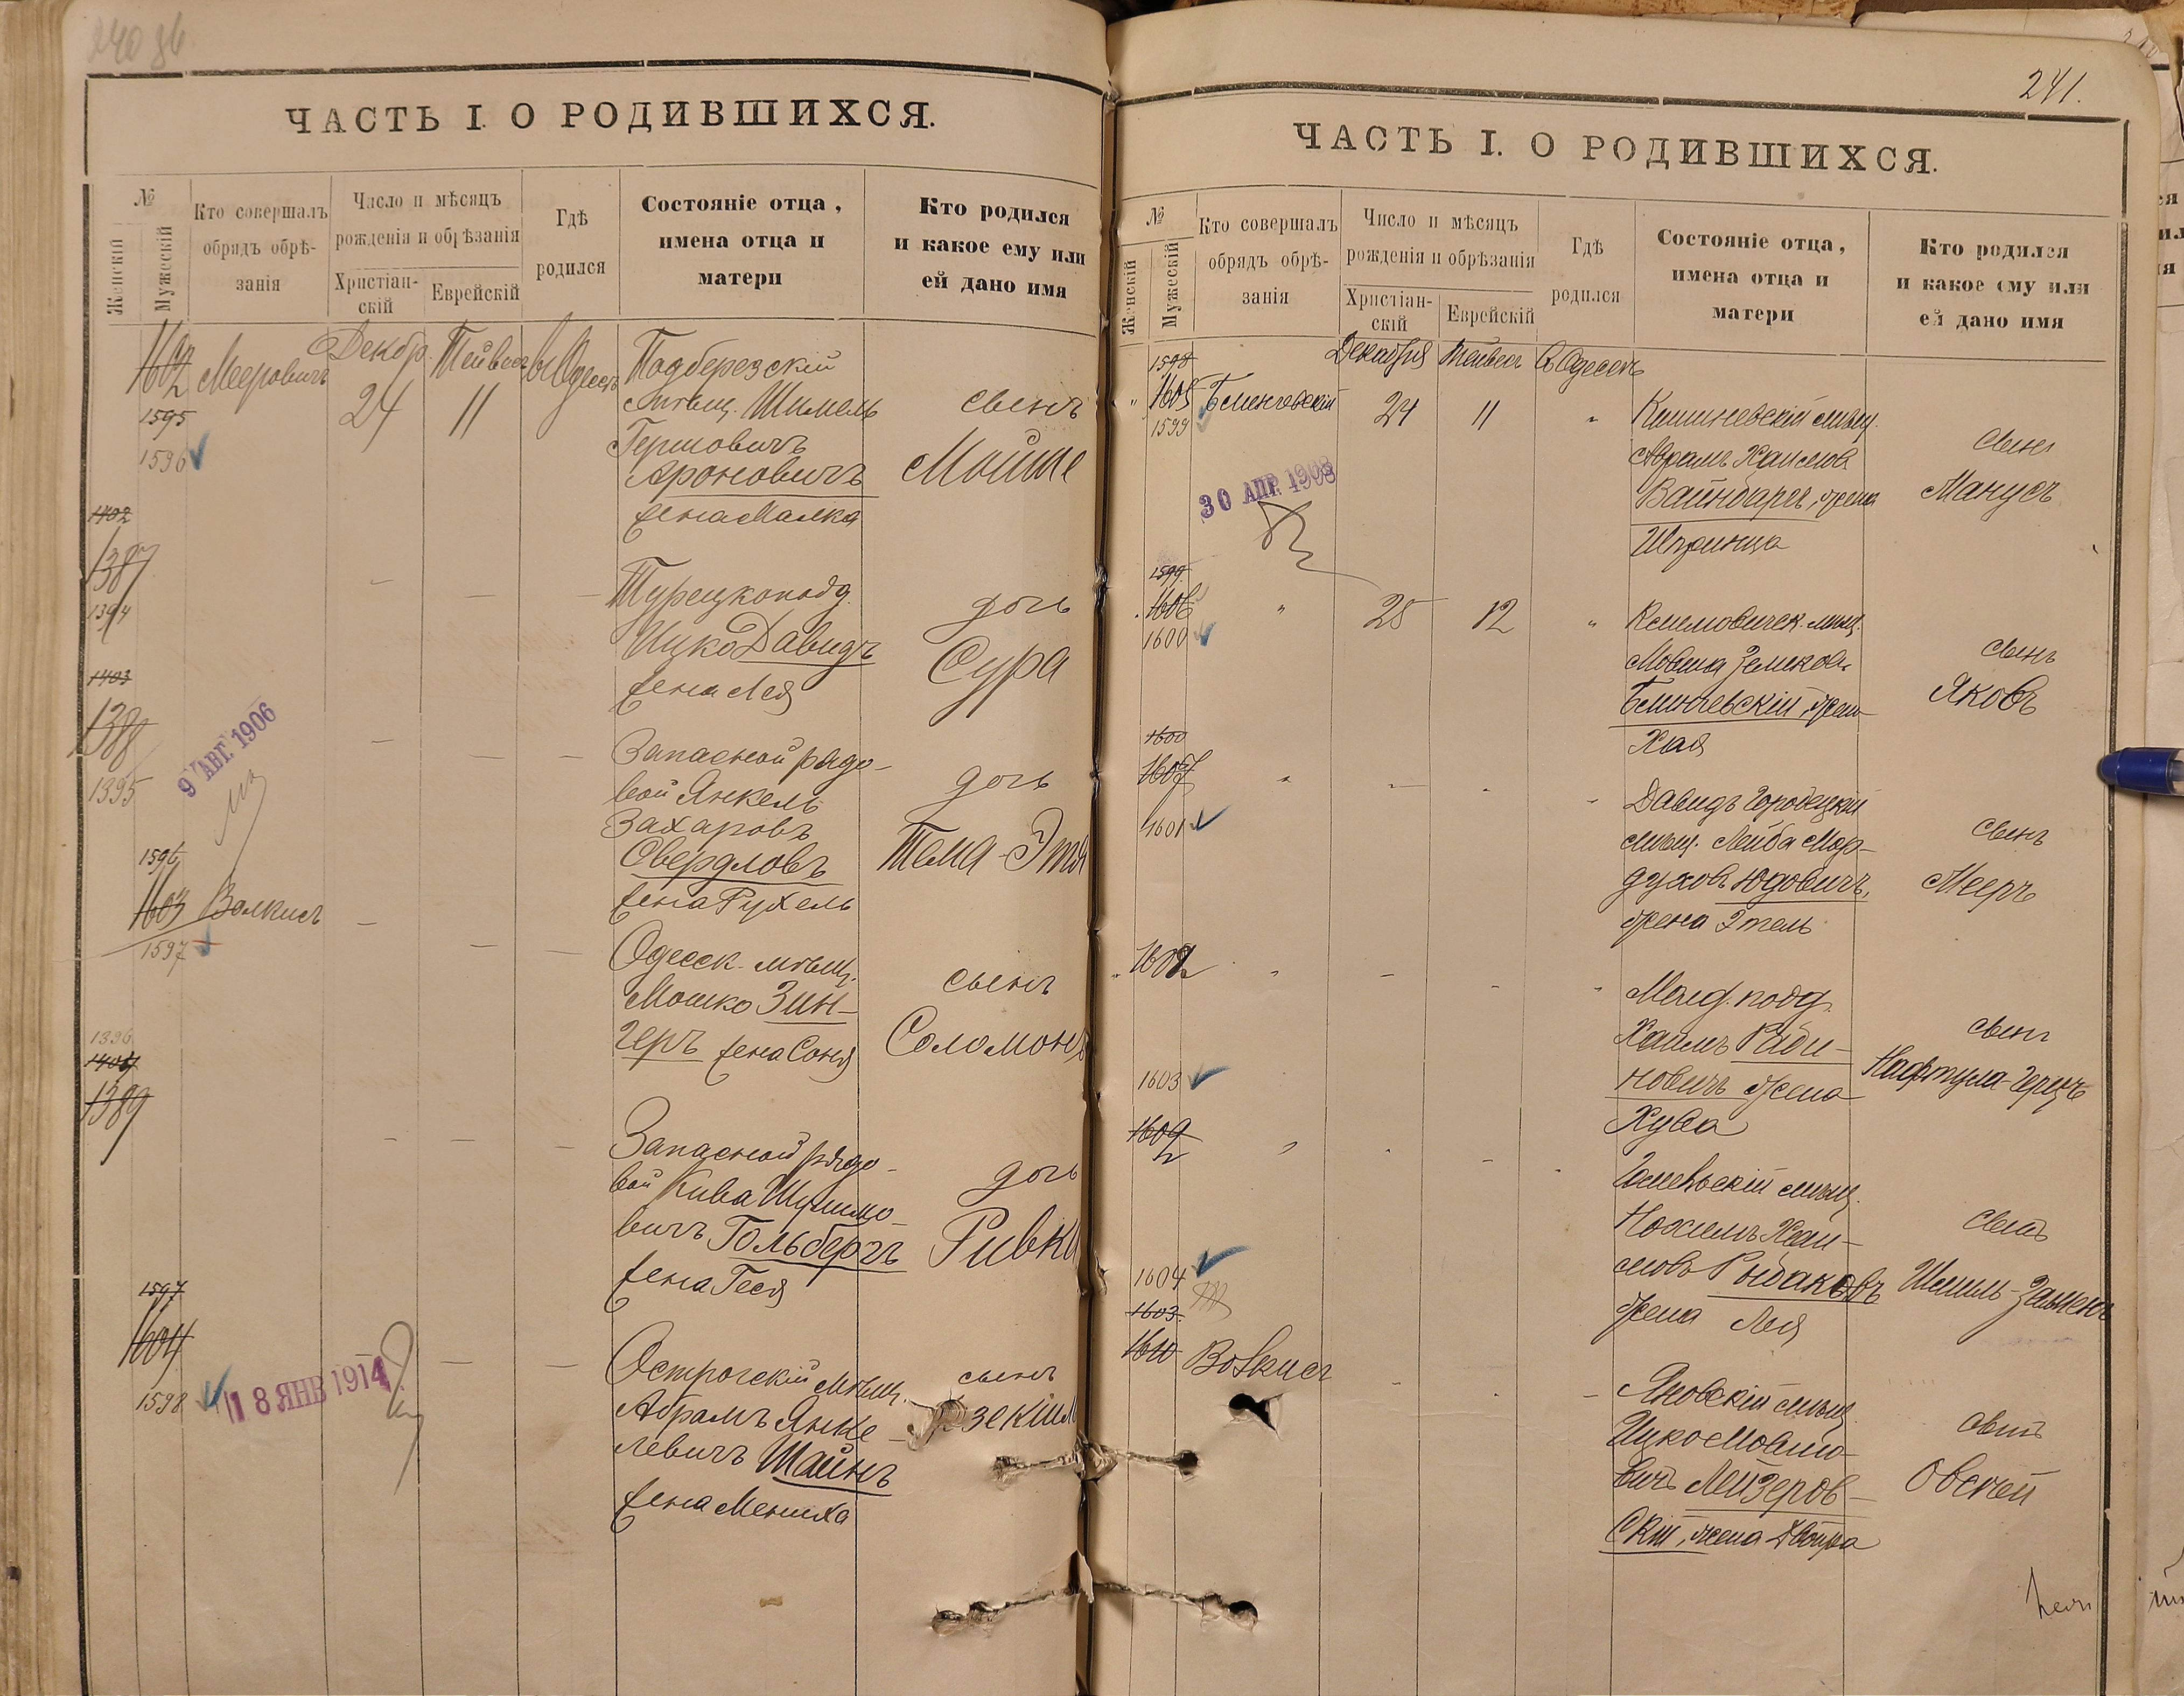 ЧАСТЬ I. О РОДИВШИХСЯ.
№
Женскій
Мужескій
Кто совершалъ
обрядъ обрѣ-
занія
Число и мѣсяцъ
рожденія и обрѣзанія
Христіан-
скій
Еврейскій
Гдѣ
родился
Состояніе отца,
имена отца и
матери
Кто родился
и какое ему или
ей дано имя
1602
1595
1596
Мееровичъ
Декабр.
24
Тейвесъ
11
въ Одессѣ
Подберезскій
мѣщ. Шмель
Гершовичъ
Ароновичъ
жена Малка
сынъ
Мойше
1402
1387
1394
Турецкопод.
Ицко Давидъ
жена Лея
дочь
Сура
1403
1388
1395
9 АВГ. 1906
Запасной рядо-
вой Янкель
Захаровъ
Свердловъ
жена Рухель
дочь
Тема-Этя
1596
1603
1597
Волкисъ
Одесск. мѣщ.
Мошко Зин-
геръ жена Соня
сынъ
Соломонъ
1396
1404
1389
Запасной рядо-
вой Кива Шулимо-
вичъ Гольбергъ
жена Геся
дочь
Ривка
1597
1604
1598
18 ЯНВ 1914
Острогскій мѣщ.
Абрамъ Янке-
левичъ Шайнъ
жена Мениха
сынъ
241.
ЧАСТЬ I. О РОДИВШИХСЯ.
№
Женскій
Мужескій
Кто совершалъ
обрядъ обрѣ-
занія
Число и мѣсяцъ
рожденія и обрѣзанія
Христіан-
скій
Еврейскій
Гдѣ
родился
Состояніе отца,
имена отца и
матери
Кто родился
и какое ему или
ей дано имя
1598
1605
1599
Декабря
24
Тейвесъ
11
въ Одессѣ
30 АПР. 1908
Кишиневскій мѣщ.
Абрамъ Хаимовъ
Вайнбергъ, жена
Шпринца
сынъ
Манусъ
1599
1606
1600
"
25
12
"
Климовичск. мѣщ.
Мовша Зеликовъ
жена
Хая
сынъ
Яковъ
1600
1607
1601
Давидъ Городецкій
мѣщ. Лейба Мор-
духовъ Юдовичъ,
жена Этель
сынъ
Мееръ
1603
Молд. подд.
Хаимъ Раби-
новичъ жена
Хува
сынъ
Нафтула-Герцъ
1609
1604
1603
Гомельскій мѣщ.
Нохимъ Хаи-
мовъ Рыбаковъ
жена Лея
сынъ
Шмиль-Залмень
1610
Волкисъ
Яновскій мѣщ.
Ицко Мовшо-
вичъ Лейзеров-
скій, жена Двойра
сынъ
Овсей